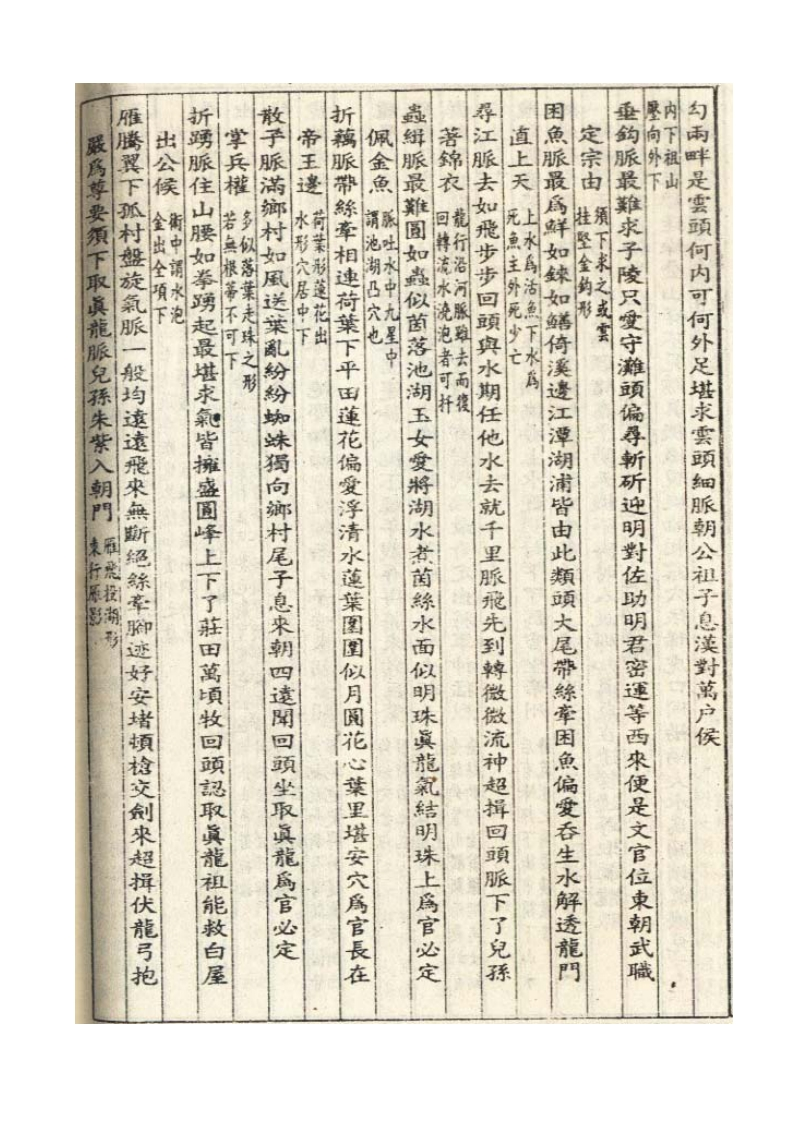 勾兩畔是雲頭何內可何外足堪求雲頭細脈朝公祖子息漢對萬户侯
內下祖山
壓向外下
垂鈎脈最難求子陵只愛守灘頭偏尋斬斫迎明對佐助明君密運等西來便是文官位東朝武職
定宗由
須下求之或雲
挂堅金鈎形
困魚脈最爲鮮如鍊如鱔倚溪邊江潭湖浦皆由此類頭大尾帶絲牽困魚偏愛吞生水解透龍門
直上天
上水爲活魚下水爲
死魚主外死少亡
尋江脈去如飛步步回頭與水期任他水去就千里脈飛先到轉微微流神超揖回頭脈下了兒孫
著錦衣
龍行沿河脈雖去而復
回轉流水澆泡者可扦
蟲緝脈最難圓如蟲似茵落池湖玉女愛將湖水煮茵絲水面似明珠眞龍氣結明珠上爲官必定
佩金魚
脈吐水中九星中
謂池湖凸穴也
折藕脈帶絲牽相連荷葉下平田蓮花偏愛浮清水蓮葉圍圍似月圓花心葉里堪安穴爲官長在
帝王邊
荷葉形蓮花出
水形穴居中下
散子脈滿鄉村如風送葉亂紛紛蜘蛛獨向鄉村尾子息來朝四遠聞回頭坐取眞龍爲官必定
掌兵權
多似落葉走珠之形
若無根蒂不可下
折踴脈住山腰如拳踴起最堪求氣皆擁盛圓峰上下了莊田萬頃牧回頭認取眞龍祖能救白屋
出公候
術中謂水泡
金出全項下
雁騰翼下孤村盤旋氣脈一般均遠遠飛來無斷絕絲牽腳迹好安堵頓槍交劍來超揖伏龍弓抱
嚴爲尊要須下取眞龍脈兒孫朱紫入朝門
雁飛投湖形
来行雁影